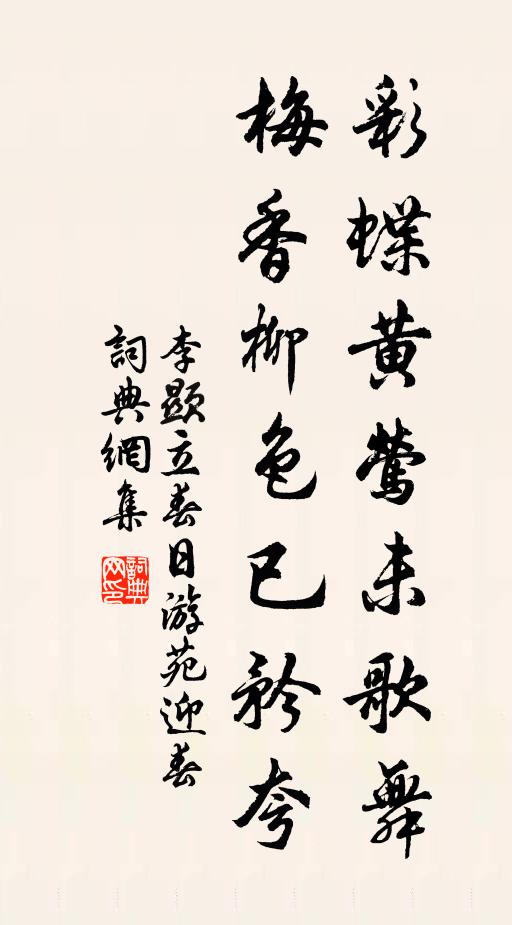 彩蝶黄莺未歌舞
梅香柳色已矜夸
李顯立春日游苑迎春
詞典網集
詞典网印